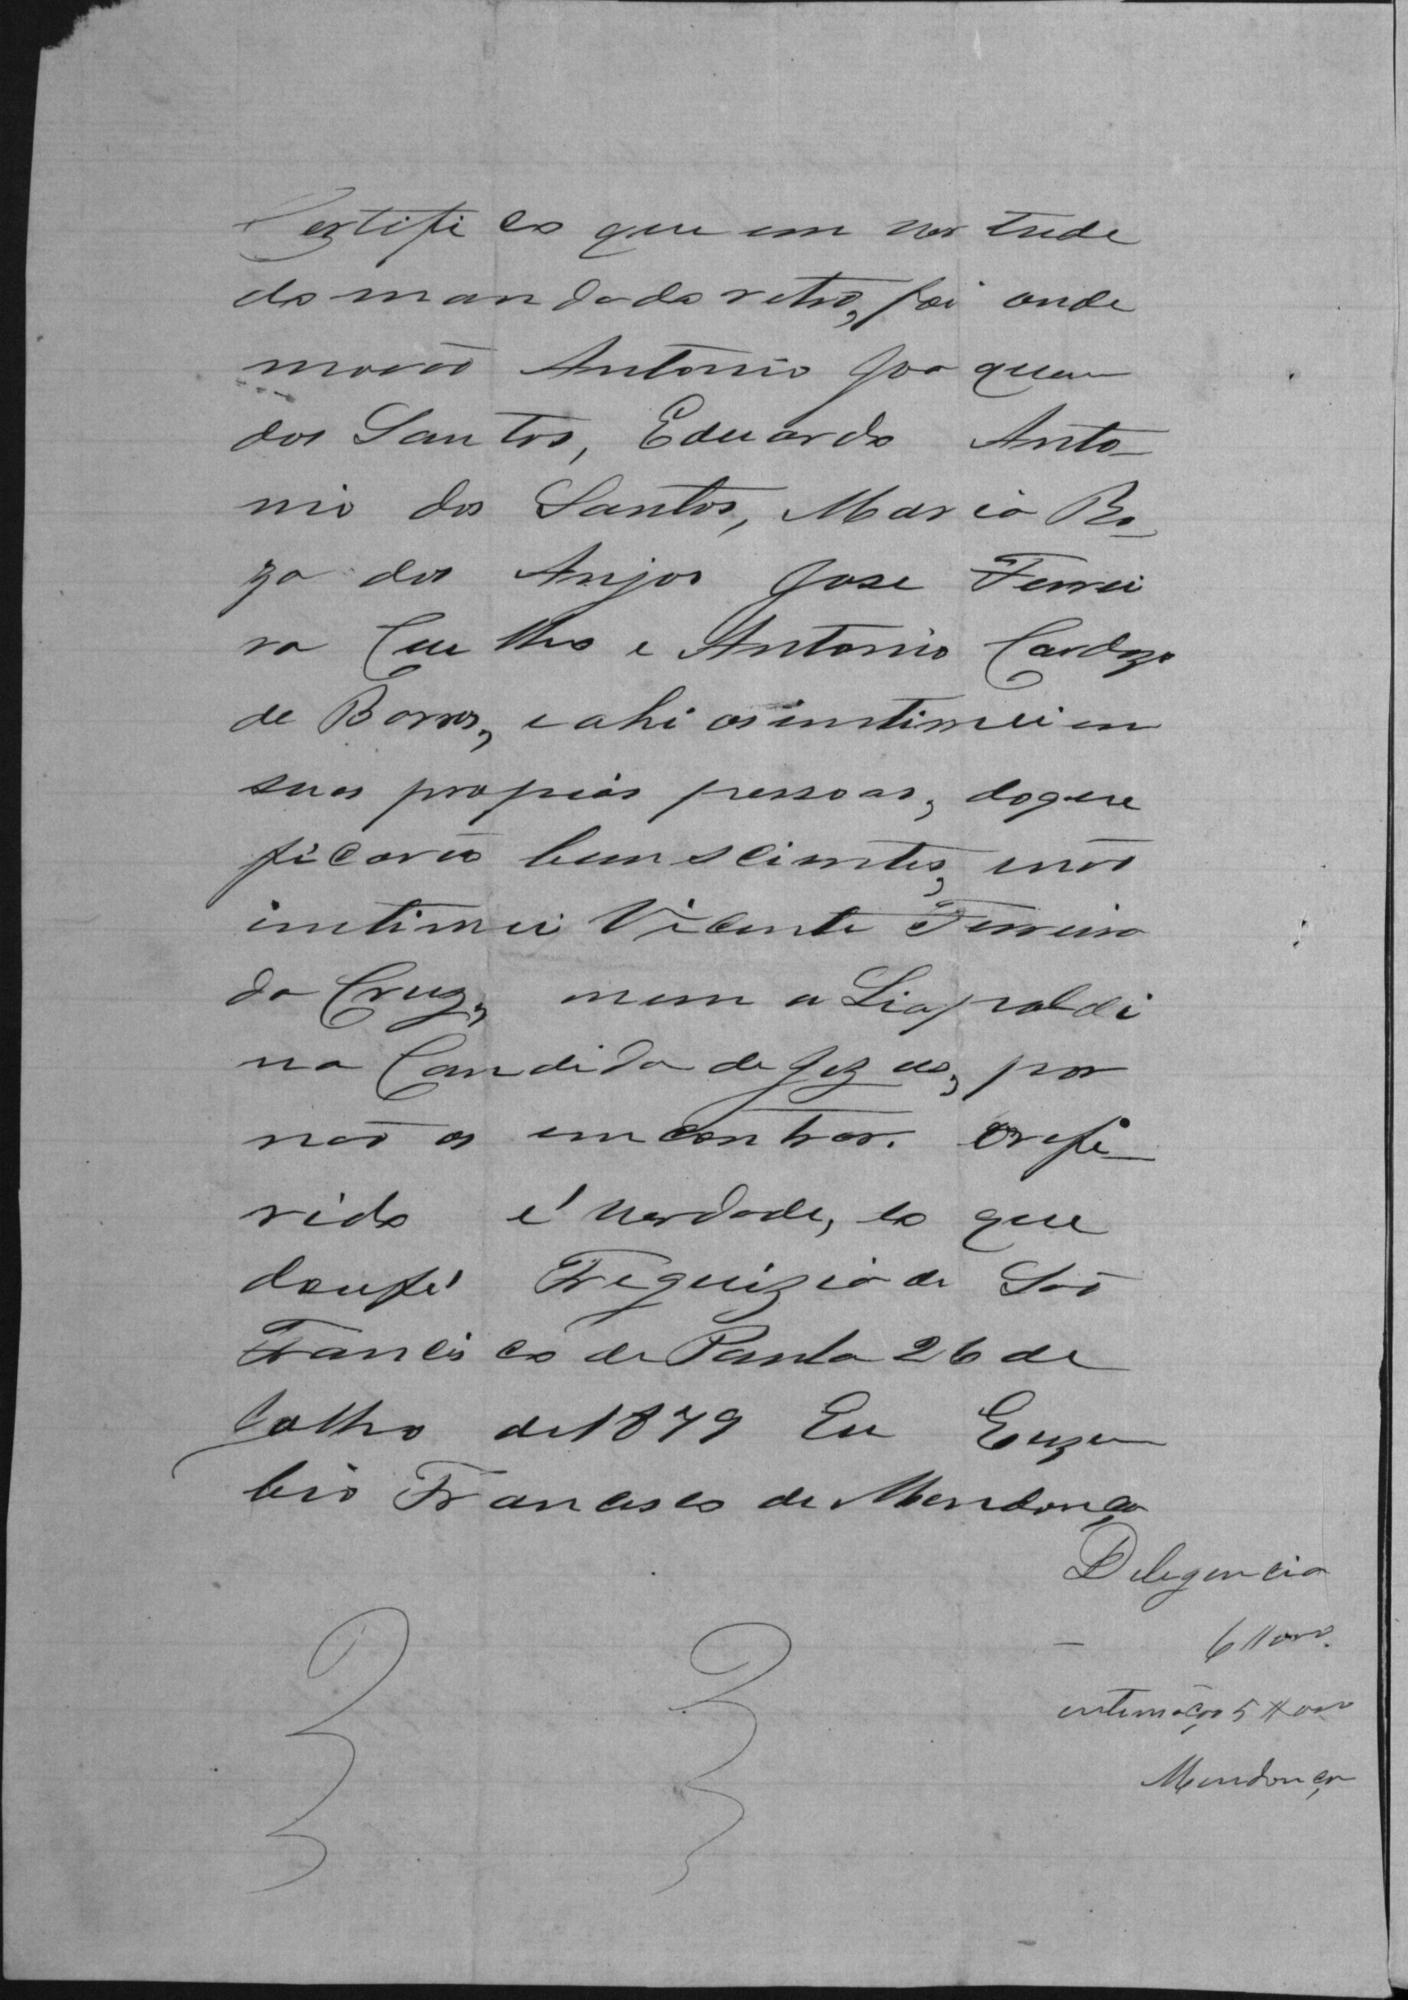 Certifico que em vertude
do mandado retro, foi onde
moraõ Antonio Joaquem
dos Santos, Eduardo Anto-
nio dos Santos, Maria Ro-
za dos Anjos Jose Ferrei
ra Cuelho e Antonio Cardozo
de Barros, e ahi os intimei em
suas propias pessoas, do que
ficaraõ bem scientes, e não
intimei Vicente Ferreira
da Cruz, nem a Liapoldi
na Candida de Jezus, por
não os emcontrar. O refe-
rido é verdade, co que
dou fé Freguizia de Saõ
Francisco de Paula 26 de
Julho de 1879 Eu Euze
bio Francisco de Mendonça
Delegencia
6#000.
entimações 5#000
Mendonça